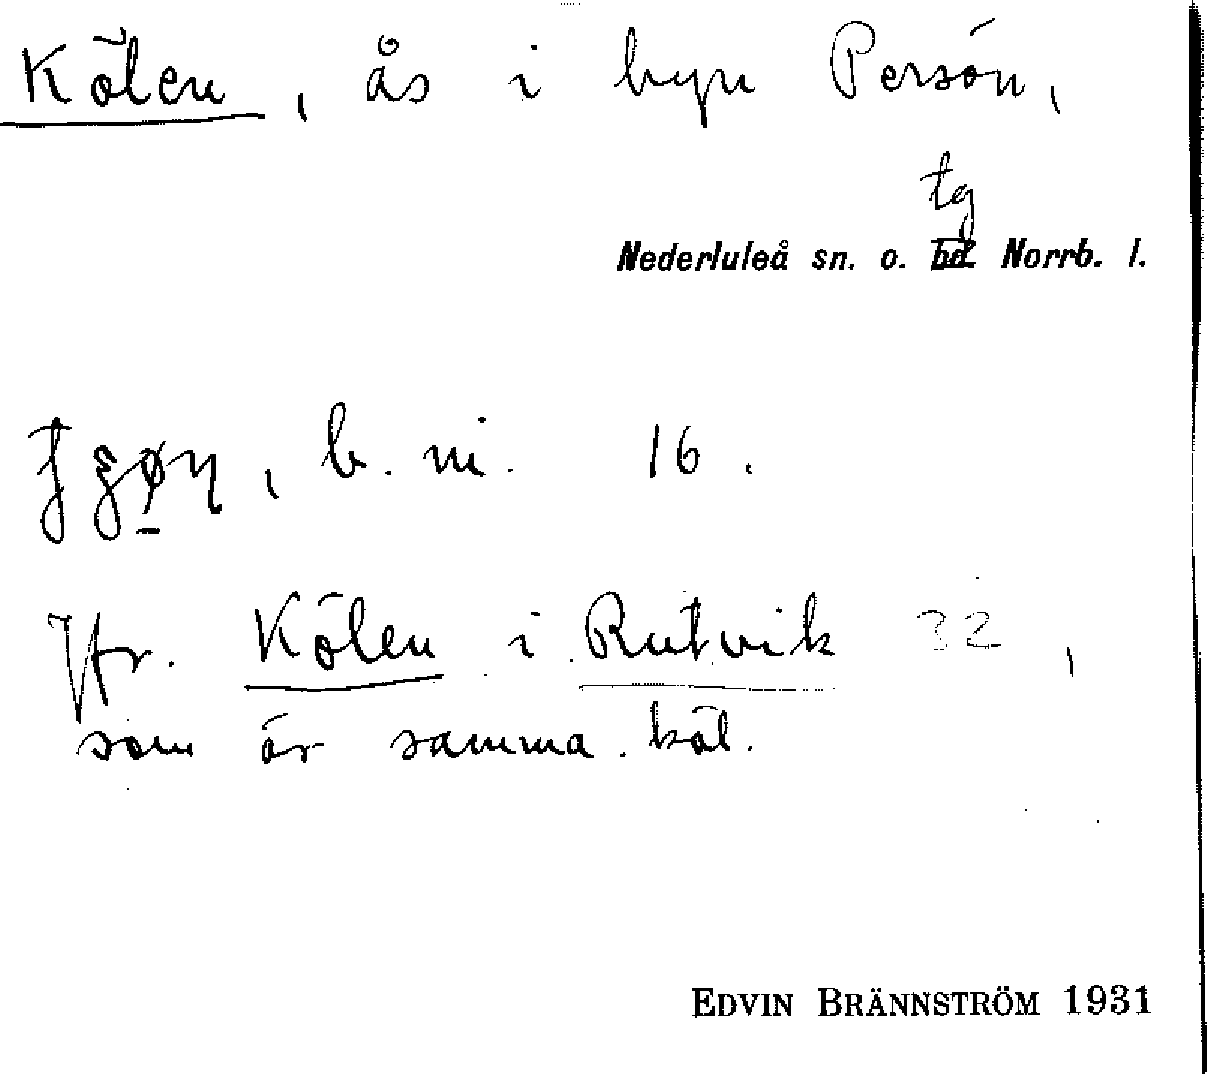 Kölen, ås i byn Persön,
tg
Nederluleå sn. o. hd Norrb. l.
b. m. 16.
Jfr. Kölen i Rutvik 32,
som är samma köl.
EDVIN BRÄNNSTRÖM 1931